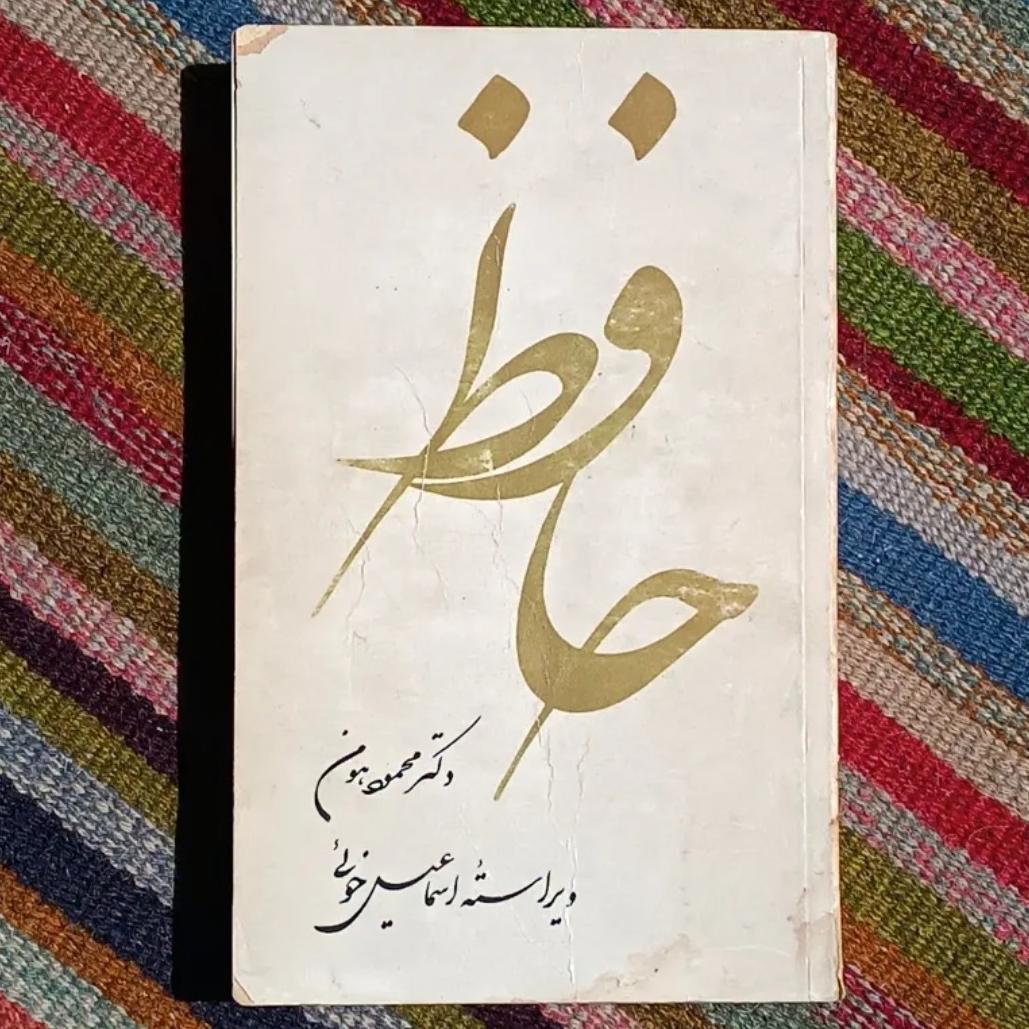 حافظ
دکتر محمود هومن
ویراستهٔ اسماعیل خوئی